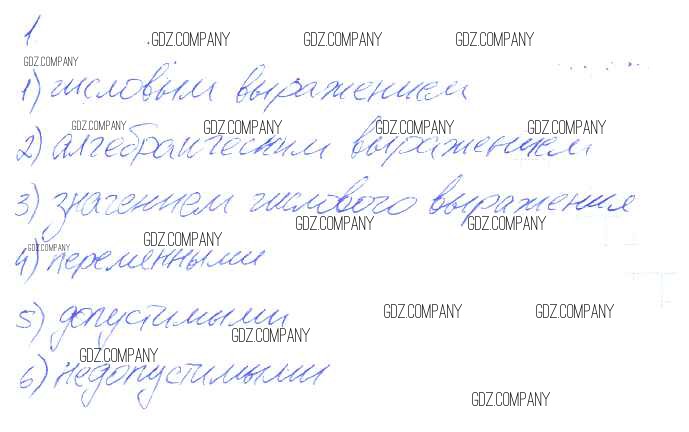 1
GDZ.COMPANY GDZ.COMPANY GDZ.COMPANY
GDZ.COMPANY
1) числовым выражением
GDZ.COMPANY GDZ.COMPANY GDZ.COMPANY GDZ.COMPANY
2) алгебраическим выражением
3) значением числового выражения
GDZ.COMPANY GDZ.COMPANY
GDZ.COMPANY GDZ.COMPANY
4) переменными
5) допустимыми
GDZ.COMPANY GDZ.COMPANY
GDZ.COMPANY
GDZ.COMPANY
6) недопустимыми
GDZ.COMPANY